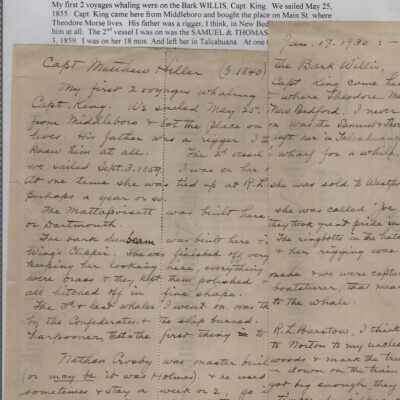 My first 2 voyages whaling were on the Bark WILLIS, Capt. King. We sailed May 25,
1855 Capt. King came here from Middleboro and bought the place on Main St. where
Theodore Morse lives. His father was a rigger, I think, in New Bed
him at all. The 2nd vessel I was on was the SAMUEL & THOMAS
3, 1859. I was on her 18 mos. And left her in Talcahuana. At one
Jan. 17, 1930:
Capt. Matthew Hiller (B. 1840)
the Bark Willis,
My first 2 voyages whaling
Capt. King came he
Capt. King. We sailed May 25.
where Theodore Mo
from Middleboro & bot the place on
New Bedford. I never
lives. His father was a rigger. I
Samuel & Thom
knew him at all. The 2nd vessel
left her in Talcahuana
we sailed Sept. 3, 1859. I was on her
wharf for a while,
At one time she was tied up at R.L.
she was sold to Westpo
perhaps a year or so.
The Mattapoisett was built here,
she was called "the
or Dartmouth.
they took great pride in
The bark Sunbeam was built here
The ringbolts in the hatc
Wing's Chapin. She was finished off very
& her rigging was
keeping her looking nice, everything
were brass & they kept them polished &
made & we were captur
all hitched off in fine shape.
boatsteerer, that mean
The 3rd & last whaler I went on was th
to the whale.
by the Confederates & the ship burned.
harpooner, that's the first thing to
R. L. Barstow, I think
to Norton to my uncles
Nathan Crosby was master buil
woods & mark the tree
(or may be it was Holmes), & he used
down on the train
sometimes & stay a week or 2, go i
got big enough, they